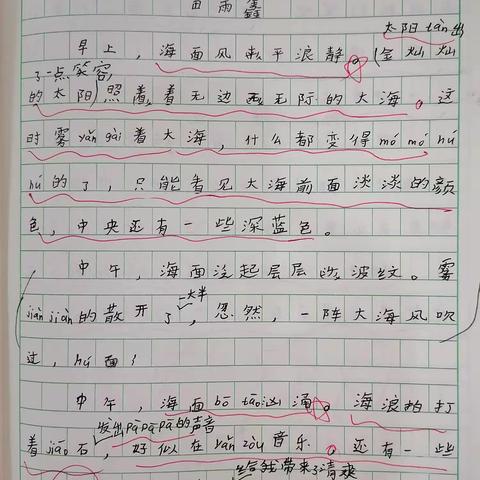 田雨鑫
太阳tàn出
早上，海面风平浪静（金灿灿
了一点笑容，
的太阳）照着着无边无际的大海。这
时雾yǎn gài着大海，什么都变得mó mó hú
hú的了，只能看见大海前面淡淡的颜
色，中央还有一些深蓝色。
中午，海面泛起层层的波纹。雾
一大半
jiàn jiàn的散开了，忽然，一阵大海风吹
过，hú面！
中午，海面bō tāo汹涌。海浪拍打
发出pā pā pā的声音
着jiāo石，好似在yǎn zòu音乐。还有一些
给我带来了清爽